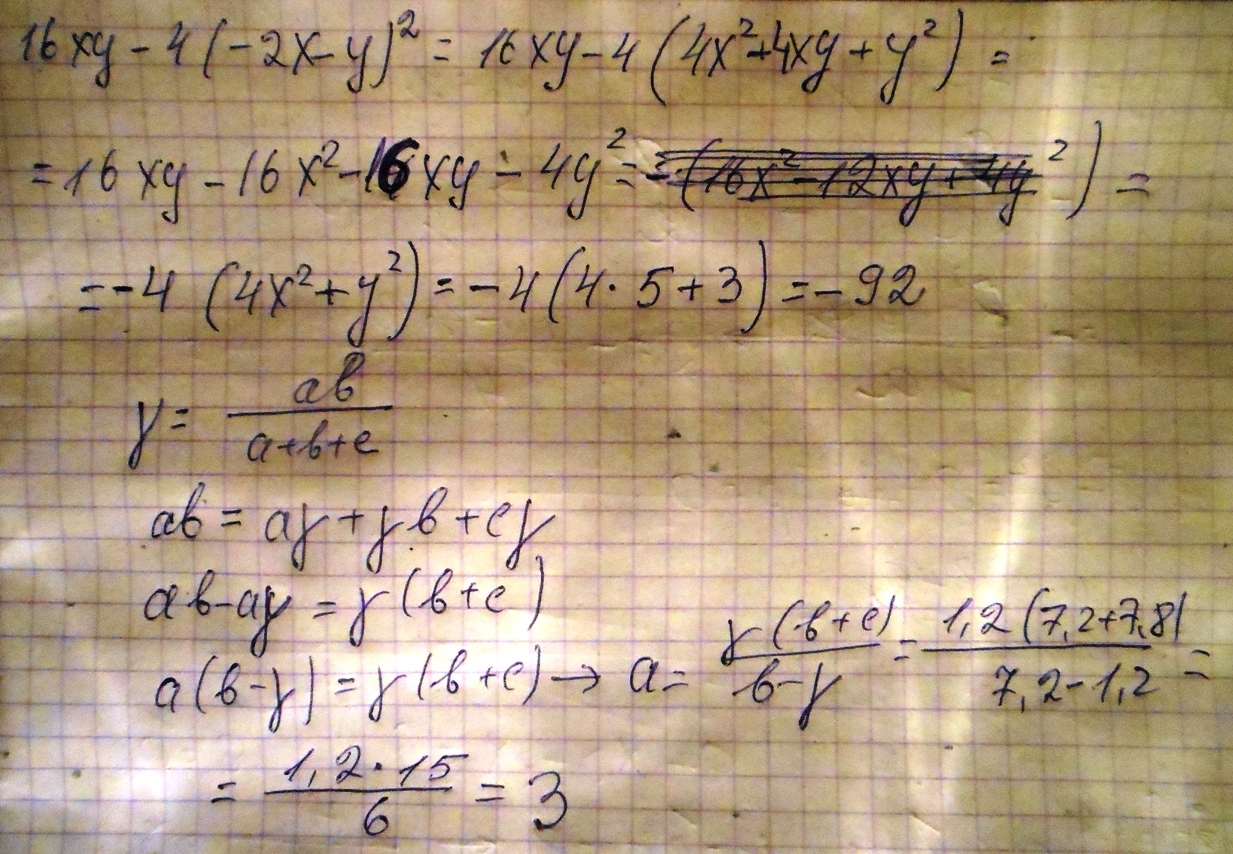 16xy - 4(-2x-y)² = 16xy - 4(4x²+4xy+y²) =
= 16xy - 16x² - 16xy - 4y² = - (16x² - 12xy + 4y²) =
= -4 (4x²+y²) = -4(4·5+3) = -92
r = ab / a+b+c
ab = ar + rb + cr
ab - ar = r(b+c)
a(b-r) = r(b+c) → a = r(b+c) / b-r = 1,2(7,2+7,8) / 7,2-1,2 =
= 1,2·15 / 6 = 3